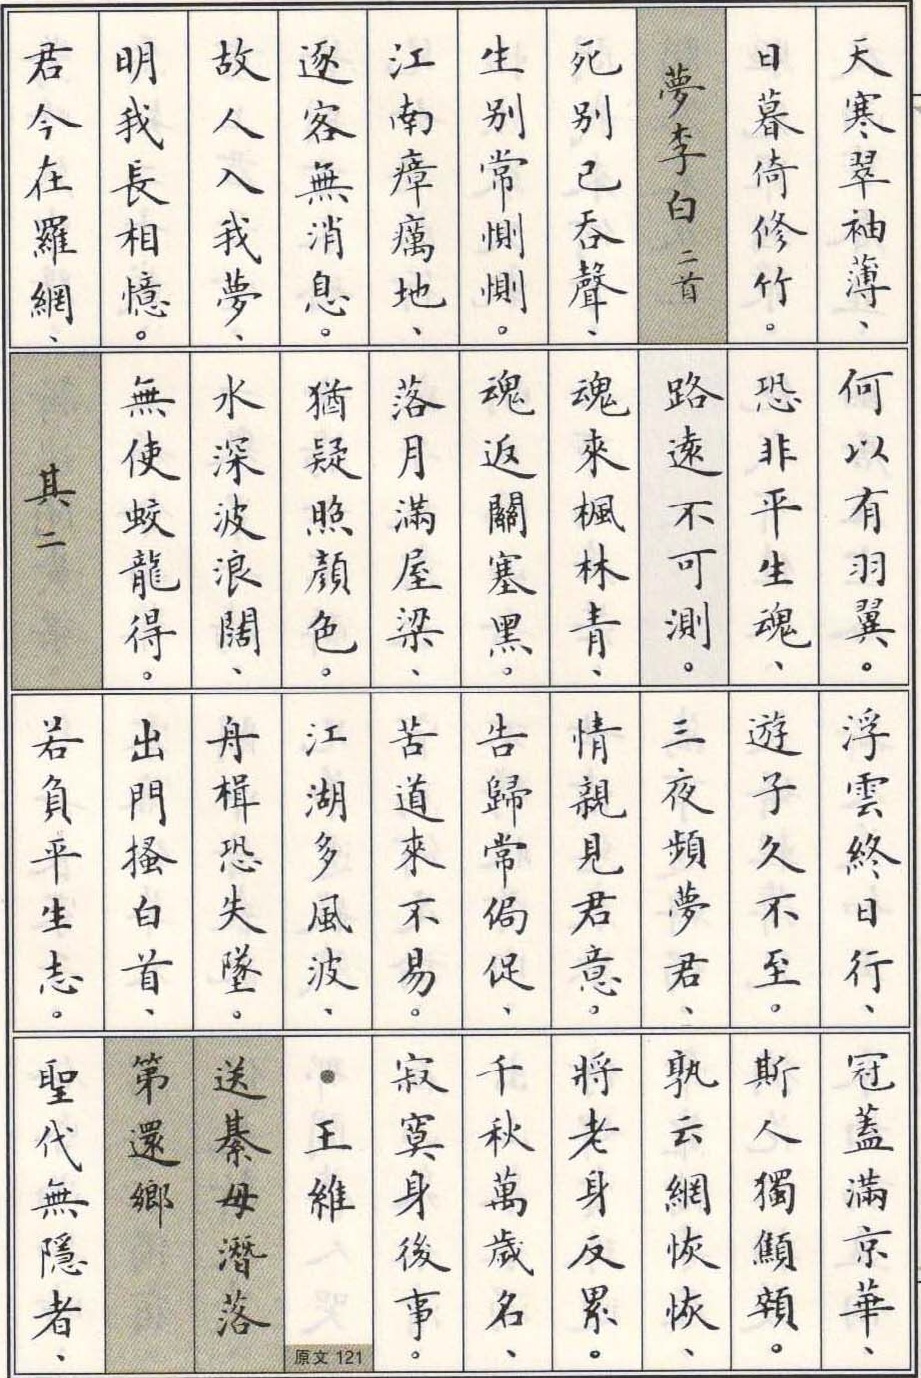 天寒翠袖薄、
日暮倚修竹。
夢李白 二首
死別已吞聲、
生別常惻惻。
江南瘴癘地、
逐客無消息。
故人入我夢、
明我長相憶。
君今在羅網、
何以有羽翼。
恐非平生魂、
路遠不可測。
魂來楓林青、
魂返關塞黑。
落月滿屋梁、
猶疑照顏色。
水深波浪闊、
無使蛟龍得。
其二
浮雲終日行、
遊子久不至。
三夜頻夢君、
情親見君意。
告歸常侷促、
苦道來不易。
江湖多風波、
舟楫恐失墜。
出門搔白首、
若負平生志。
冠蓋滿京華、
斯人獨顦顇。
孰云網恢恢、
將老身反累。
千秋萬歲名、
寂寞身後事。
●王維
原文 121
送綦母潛落
第還鄉
聖代無隱者、